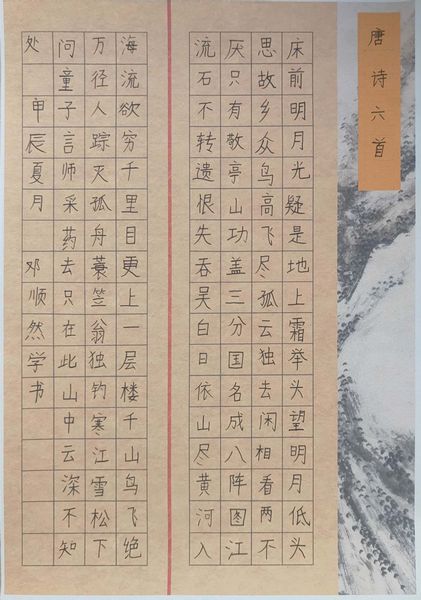 唐诗六首
床前明月光疑是地上霜举头望明月低头
思故乡众鸟高飞尽孤云独去闲相看两不
厌只有敬亭山功盖三分国名成八阵图江
流石不转遗恨失吞吴白日依山尽黄河入
海流欲穷千里目更上一层楼千山鸟飞绝
万径人踪灭孤舟蓑笠翁独钓寒江雪松下
问童子言师采药去只在此山中云深不知
处 甲辰夏月 邓顺然学书